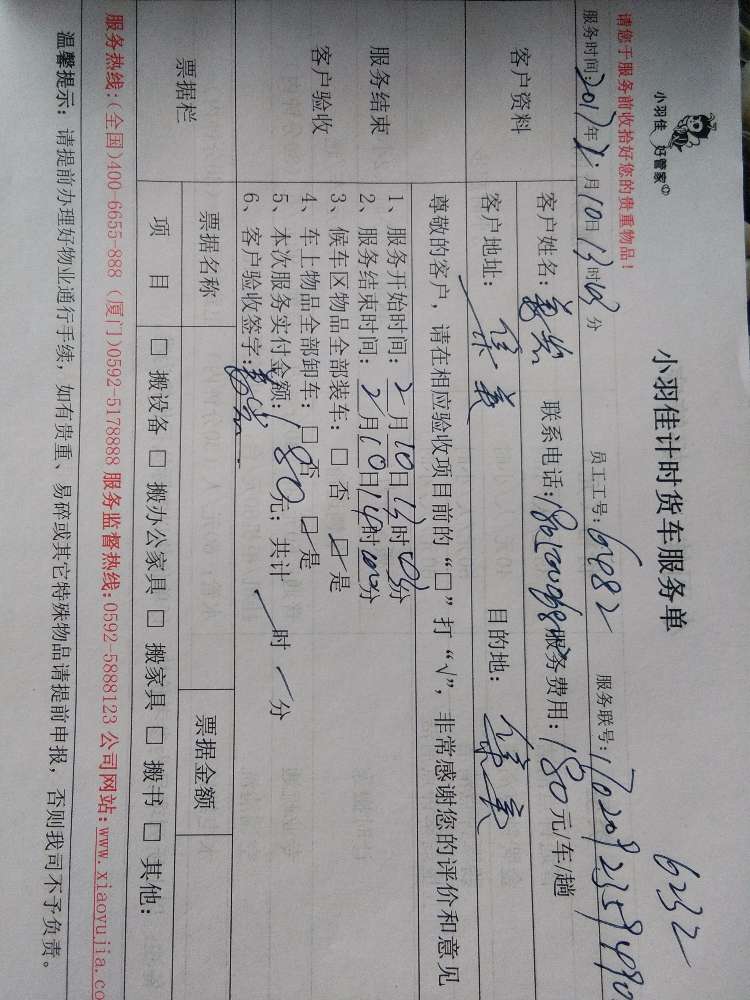 小羽佳 好管家
小羽佳计时货车服务单
6232
请您于服务前收拾好您的贵重物品！
服务时间：2017年2月10日13时03分 员工工号：6482 服务联号：170209235949
客户资料
客户姓名： 联系电话： 服务费用：180元/车/趟
客户地址：集美 目的地：集美
服务结束
客户验收
尊敬的客户，请在相应验收项目前的“□”打“√”，非常感谢您的评价和意见
1、服务开始时间：2月10日13时03分
2、服务结束时间：2月10日14时00分
3、候车区物品全部装车：□ 否 ☑是
4、车上物品全部卸车：□ 否 ☑是
5、本次服务实付金额：180元；共计 时 分
6、客户验收签字：
票据栏
票据名称 票据金额
项 目 □ 搬设备 □ 搬办公家具 □ 搬家具 □ 搬书 □ 其他：
服务热线：(全国)400-6655-888 (厦门)0592-5178888 服务监督热线：0592-5888123 公司网站：www.xiaoyujia.co
温馨提示：请提前办理好物业通行手续，如有贵重、易碎或其它特殊物品请提前申报，否则我司不予负责。